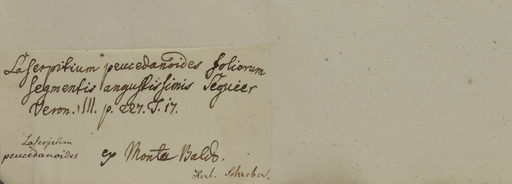 Laserpitium peucedanoides foliorum
segmentis angustissimis Seguier
Veron. III. p. 227. T. 17.
Laserpitium
peucedanoides
ex Monte Baldo.
Herb. Schreber.